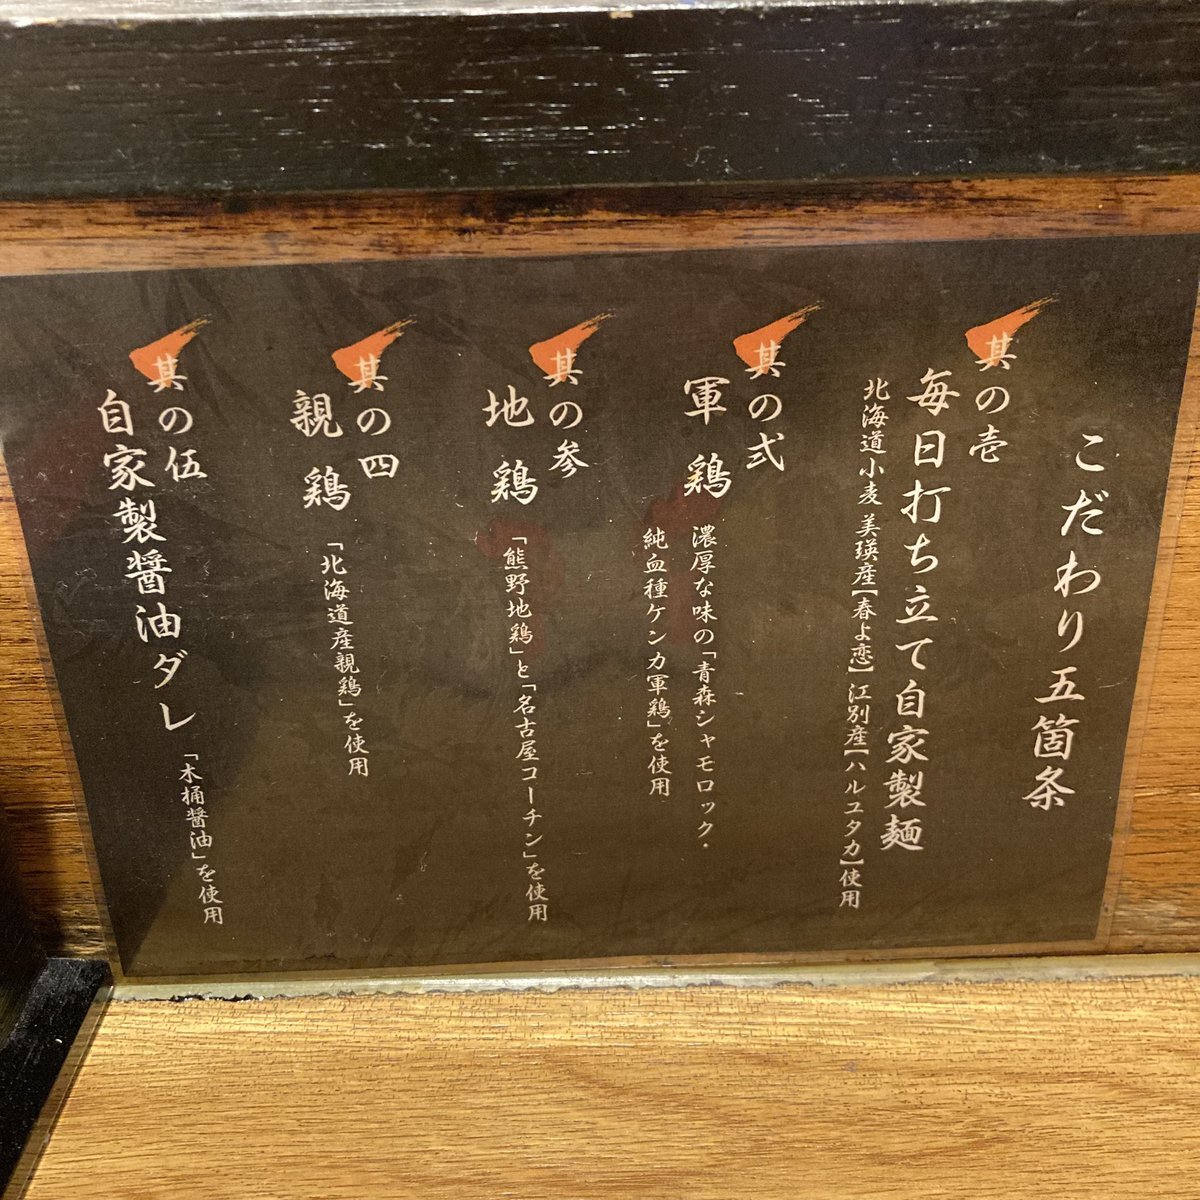 こだわり五箇条
其の壱
毎日打ち立て自家製麺
北海道小麦 美瑛産【春よ恋】 江別産【ハルユタカ】使用
其の弐
軍鶏
濃厚な味の「青森シャモロック・
純血種ケンカ軍鶏」を使用
其の参
地鶏
「熊野地鶏」と「名古屋コーチン」を使用
其の四
親鶏
「北海道産親鶏」を使用
其の伍
自家製醤油ダレ
「木桶醤油」を使用